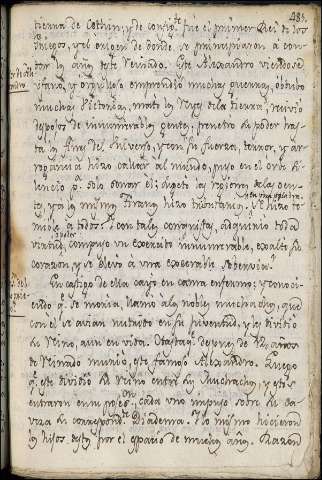 285.
tierra de Cethin; y de consigᵗᵉ fue el primer Rei de los
Griegos, y el origen de donde se principiaron à con-
tar los años de su Reinado. Este Alexandro viendose
ufano, y orgulloso emprendiò muchas guerras, obtubo
muchas Victorias, matò los Reyes de la tierra, recivio
despojos de innumerables gentes, penetrò su poder has-
ta los fines del Universo, y con su fuerza, terror, y ar-
rogancia hizo callar al mundo, puso en el orbe si-
lencio
y à los mismos Tiranos hizo tributarios. Se hizo te-
mible à todos. Con tales conquistas adquirio toda
virtud, compuso un exercito innumerable, exaltò su
corazon, y se elevò à una exorbitante sobervia.
En castigo de ella cayò en cama enfermo; y conoci-
endo qᵉ se moria, llamò à los nobles muchachos, que
con el se avian nutrido en su juventud, y les dividiò
su Reino, aun en vida. despues de 12 años
de Reinado muriò este famoso Alexandro. Luego
qᵉ este dividiò su Reino entre sus Muchachos, y estos
entraron en su posesⁿ, cada uno impuso sobre su ca-
veza su correspondᵗᵉ Diadema. Lo mismo hicieron
los hijos de estos por el espacio de muchos años. Razon